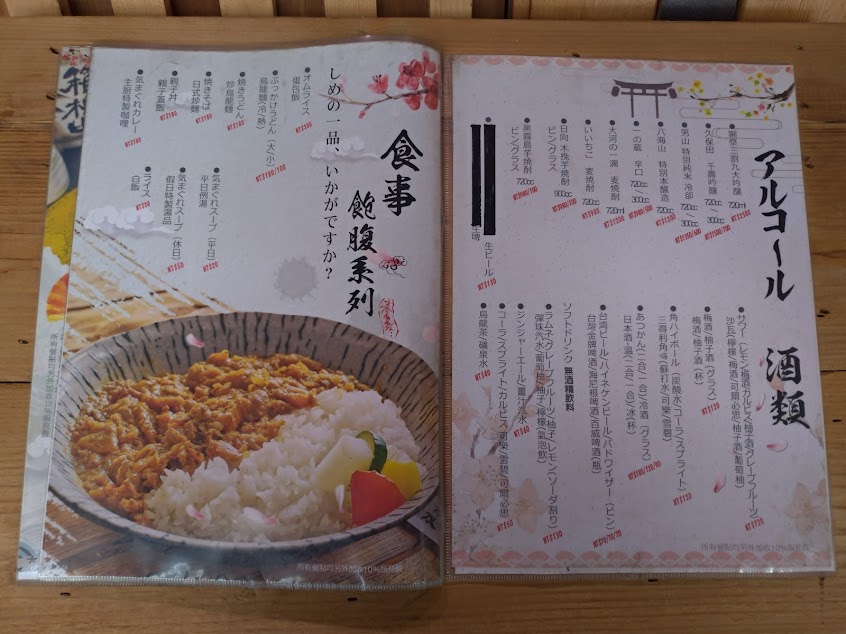 食事
飽腹系列
しめの一品、いかがですか？
●オムライス
蛋包飯
●ぶっかけうどん（大/小）
烏龍麵(冷/熱)
●焼きうどん
炒烏龍麵
●焼きそば
日式炒麵
●親子丼
親子蓋飯
●気まぐれカレー
主廚特製咖哩
●気まぐれスープ（平日）
平日例湯
●気まぐれスープ（休日）
假日特製湯品
●ライス
白飯
NT$20
所有餐點均另外加收10%服務費
アルコール 酒類
●獺祭三割九分大吟醸 720ml
●久保田 千壽吟釀 720cc/300cc
●男山 特別純米 冷卸 720cc/300cc
●八海山 特別本釀造 720cc
●一の蔵 辛口 720cc/300cc
●大河の一滴 麦焼酎 720ml
●いいちこ 麦焼酎 720cc
●日向 木挽芋焼酎 900cc
ビングラス
●黑霧島芋焼酎 720cc
ビングラス
生ビール
生啤
NT$130
●サワー(レモン/梅酒/カルピス/柚子酒/グレープフルーツ)
沙瓦(檸檬/梅酒/可爾必思/柚子酒/葡萄柚)
NT$120
●梅酒/柚子酒（グラス）
梅酒/柚子酒（杯）
NT$120
●角ハイボール（炭酸水/コーラ/スプライト)
三得利角嗨(蘇打水/可樂/雪碧)
NT$120
●あつかん(二合/一合)/冷酒（グラス）
日本酒-溫(二合/一合)/冰(杯)
●台湾ビール/ハイネケンビール/バドワイザー（ビン）
台灣金牌啤酒/海尼根啤酒/百威啤酒(瓶)
ソフトドリンク 無酒精飲料
●ラムネ(グレープフルーツ/柚子/レモン(ソーダ割り)
彈珠汽水/葡萄柚/柚子/檸檬(氣泡飲)
●ジンジャーエール/薑汁汽水
●コーラ/スプライト/カルピス/可樂/雪碧/可爾必思
NT$50
●烏龍茶/礦泉水
NT$40
所有餐點均另外加收10%服務費